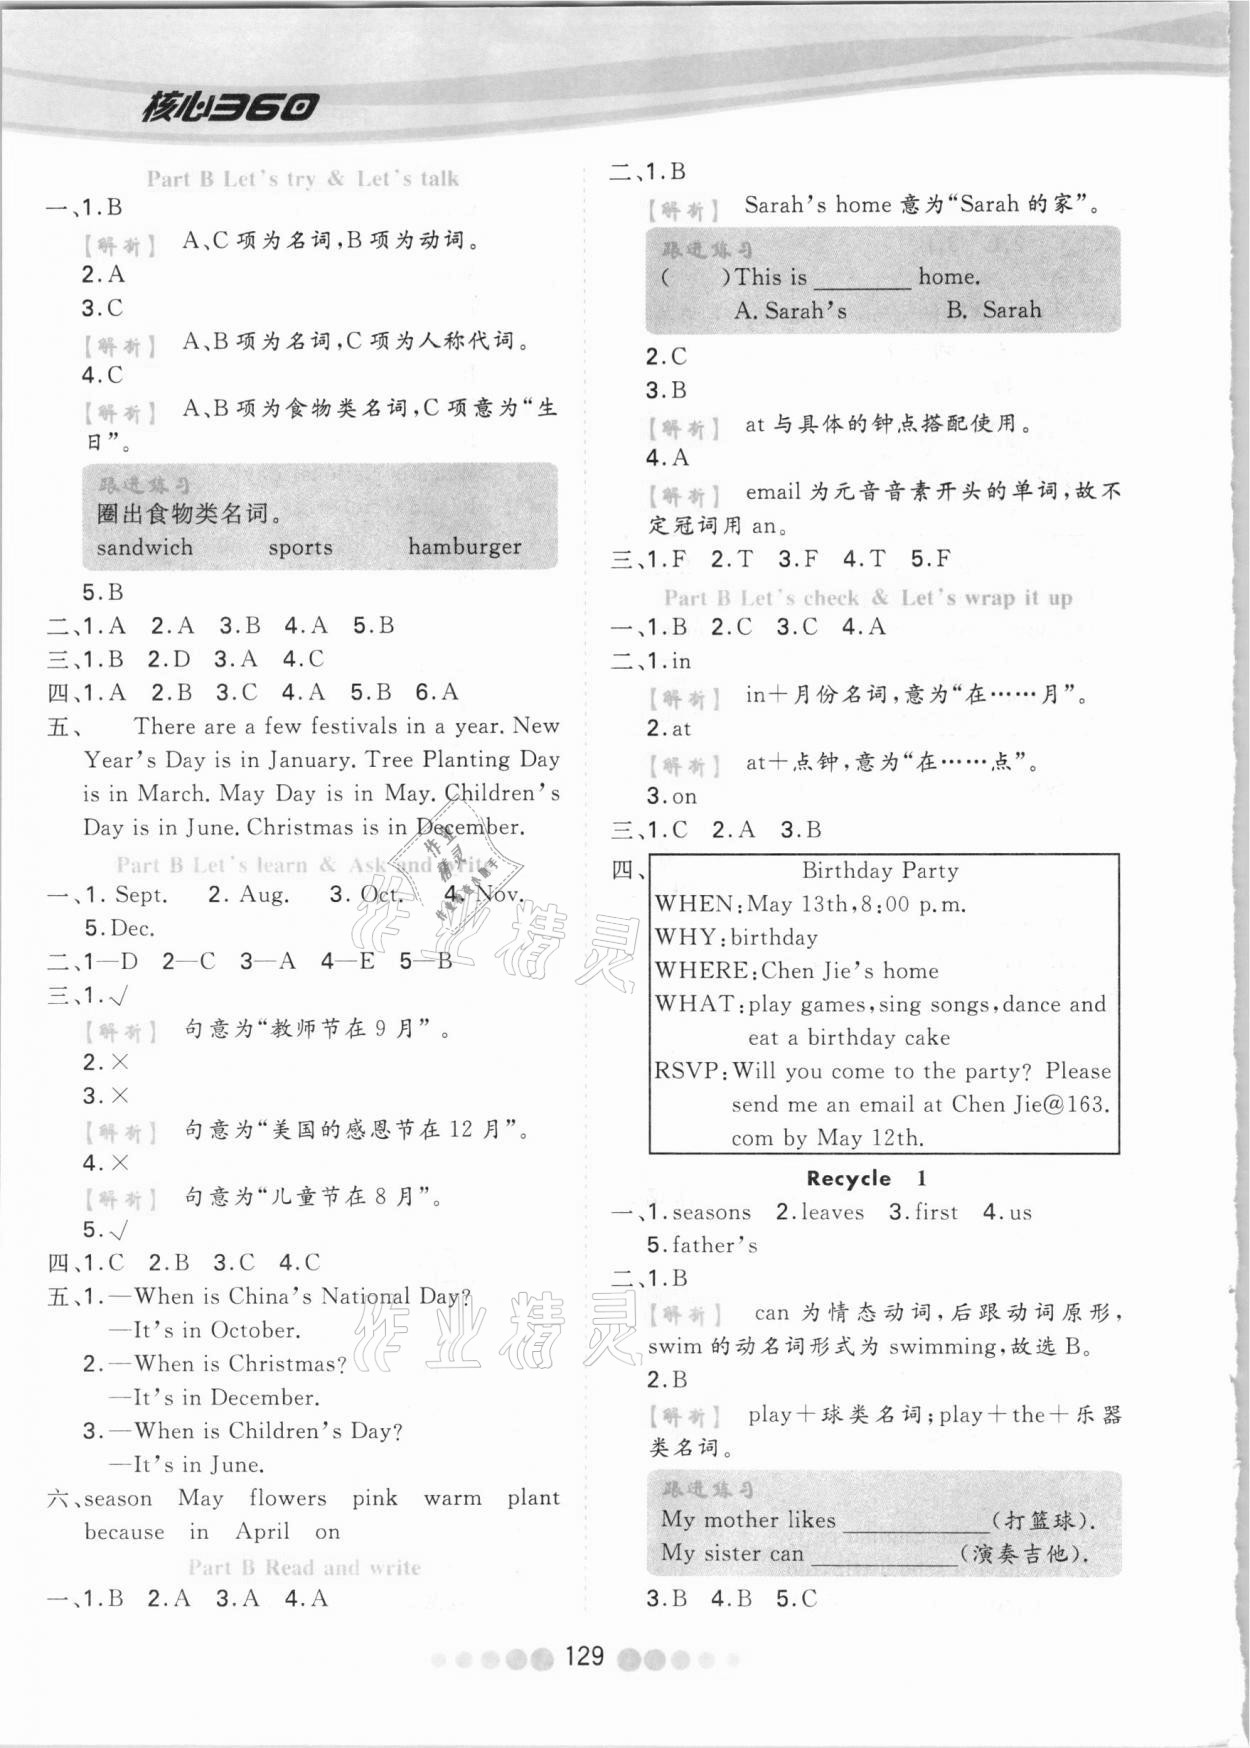 核心360
Part B Let's try & Let's talk
一、1.B
【解析】 A、C项为名词,B项为动词。
2.A
3.C
【解析】 A、B项为名词,C项为人称代词。
4.C
【解析】 A、B项为食物类名词,C项意为“生
日”。
跟进练习
圈出食物类名词。
sandwich sports hamburger
5.B
二、1.A 2.A 3.B 4.A 5.B
三、1.B 2.D 3.A 4.C
四、1.A 2.B 3.C 4.A 5.B 6.A
五、 There are a few festivals in a year. New
Year's Day is in January. Tree Planting Day
is in March. May Day is in May. Children's
Day is in June. Christmas is in December.
Part B Let's learn & Ask and write
一、1. Sept. 2. Aug. 3. Oct. 4. Nov.
5. Dec.
二、1—D 2—C 3—A 4—E 5—B
三、1.√
【解析】 句意为“教师节在9月”。
2.×
3.×
【解析】 句意为“美国的感恩节在12月”。
4.×
【解析】 句意为“儿童节在8月”。
5.√
四、1.C 2.B 3.C 4.C
五、1.—When is China's National Day?
—It's in October.
2.—When is Christmas?
—It's in December.
3.—When is Children's Day?
—It's in June.
六、season May flowers pink warm plant
because in April on
Part B Read and write
一、1.B 2.A 3.A 4.A
二、1.B
【解析】 Sarah's home意为“Sarah的家”。
跟进练习
( )This is ________ home.
A. Sarah's B. Sarah
2.C
3.B
【解析】 at与具体的钟点搭配使用。
4.A
【解析】 email为元音音素开头的单词,故不
定冠词用an。
三、1.F 2.T 3.F 4.T 5.F
Part B Let's check & Let's wrap it up
一、1.B 2.C 3.C 4.A
二、1.in
【解析】 in+月份名词,意为“在……月”。
2.at
【解析】 at+点钟,意为“在……点”。
3.on
三、1.C 2.A 3.B
四、 Birthday Party
WHEN:May 13th,8:00 p.m.
WHY:birthday
WHERE:Chen Jie's home
WHAT:play games,sing songs,dance and
eat a birthday cake
RSVP:Will you come to the party? Please
send me an email at Chen Jie@163.
com by May 12th.
Recycle 1
一、1.seasons 2.leaves 3.first 4.us
5.father's
二、1.B
【解析】 can为情态动词,后跟动词原形,
swim的动名词形式为swimming,故选B。
2.B
【解析】 play+球类名词;play+the+乐器
类名词。
跟进练习
My mother likes ____________(打篮球).
My sister can ____________(演奏吉他).
3.B 4.B 5.C
129
作业精灵
作业精灵
作业精灵